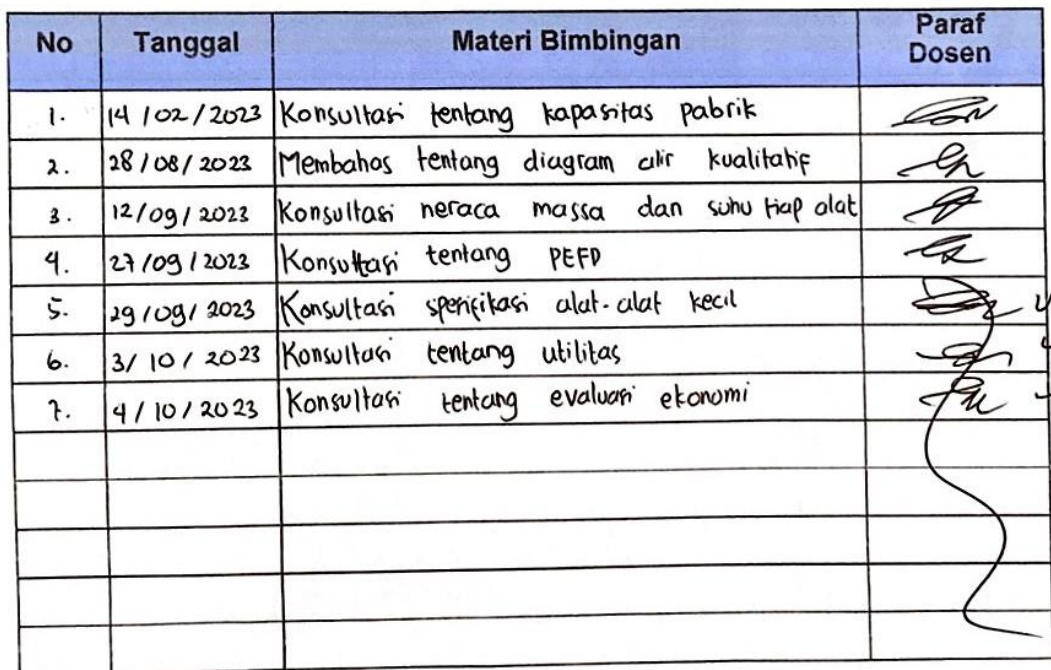 No Tanggal Materi Bimbingan Paraf Dosen
1. 14/02/2023 Konsultasi tentang kapasitas pabrik
2. 28/08/2023 Membahas tentang diagram alir kualitatif
3. 12/09/2023 Konsultasi neraca massa dan suhu tiap alat
4. 27/09/2023 Konsultasi tentang PEFD
5. 29/09/2023 Konsultasi spesifikasi alat-alat kecil
6. 3/10/2023 Konsultasi tentang utilitas
7. 4/10/2023 Konsultasi tentang evaluasi ekonomi